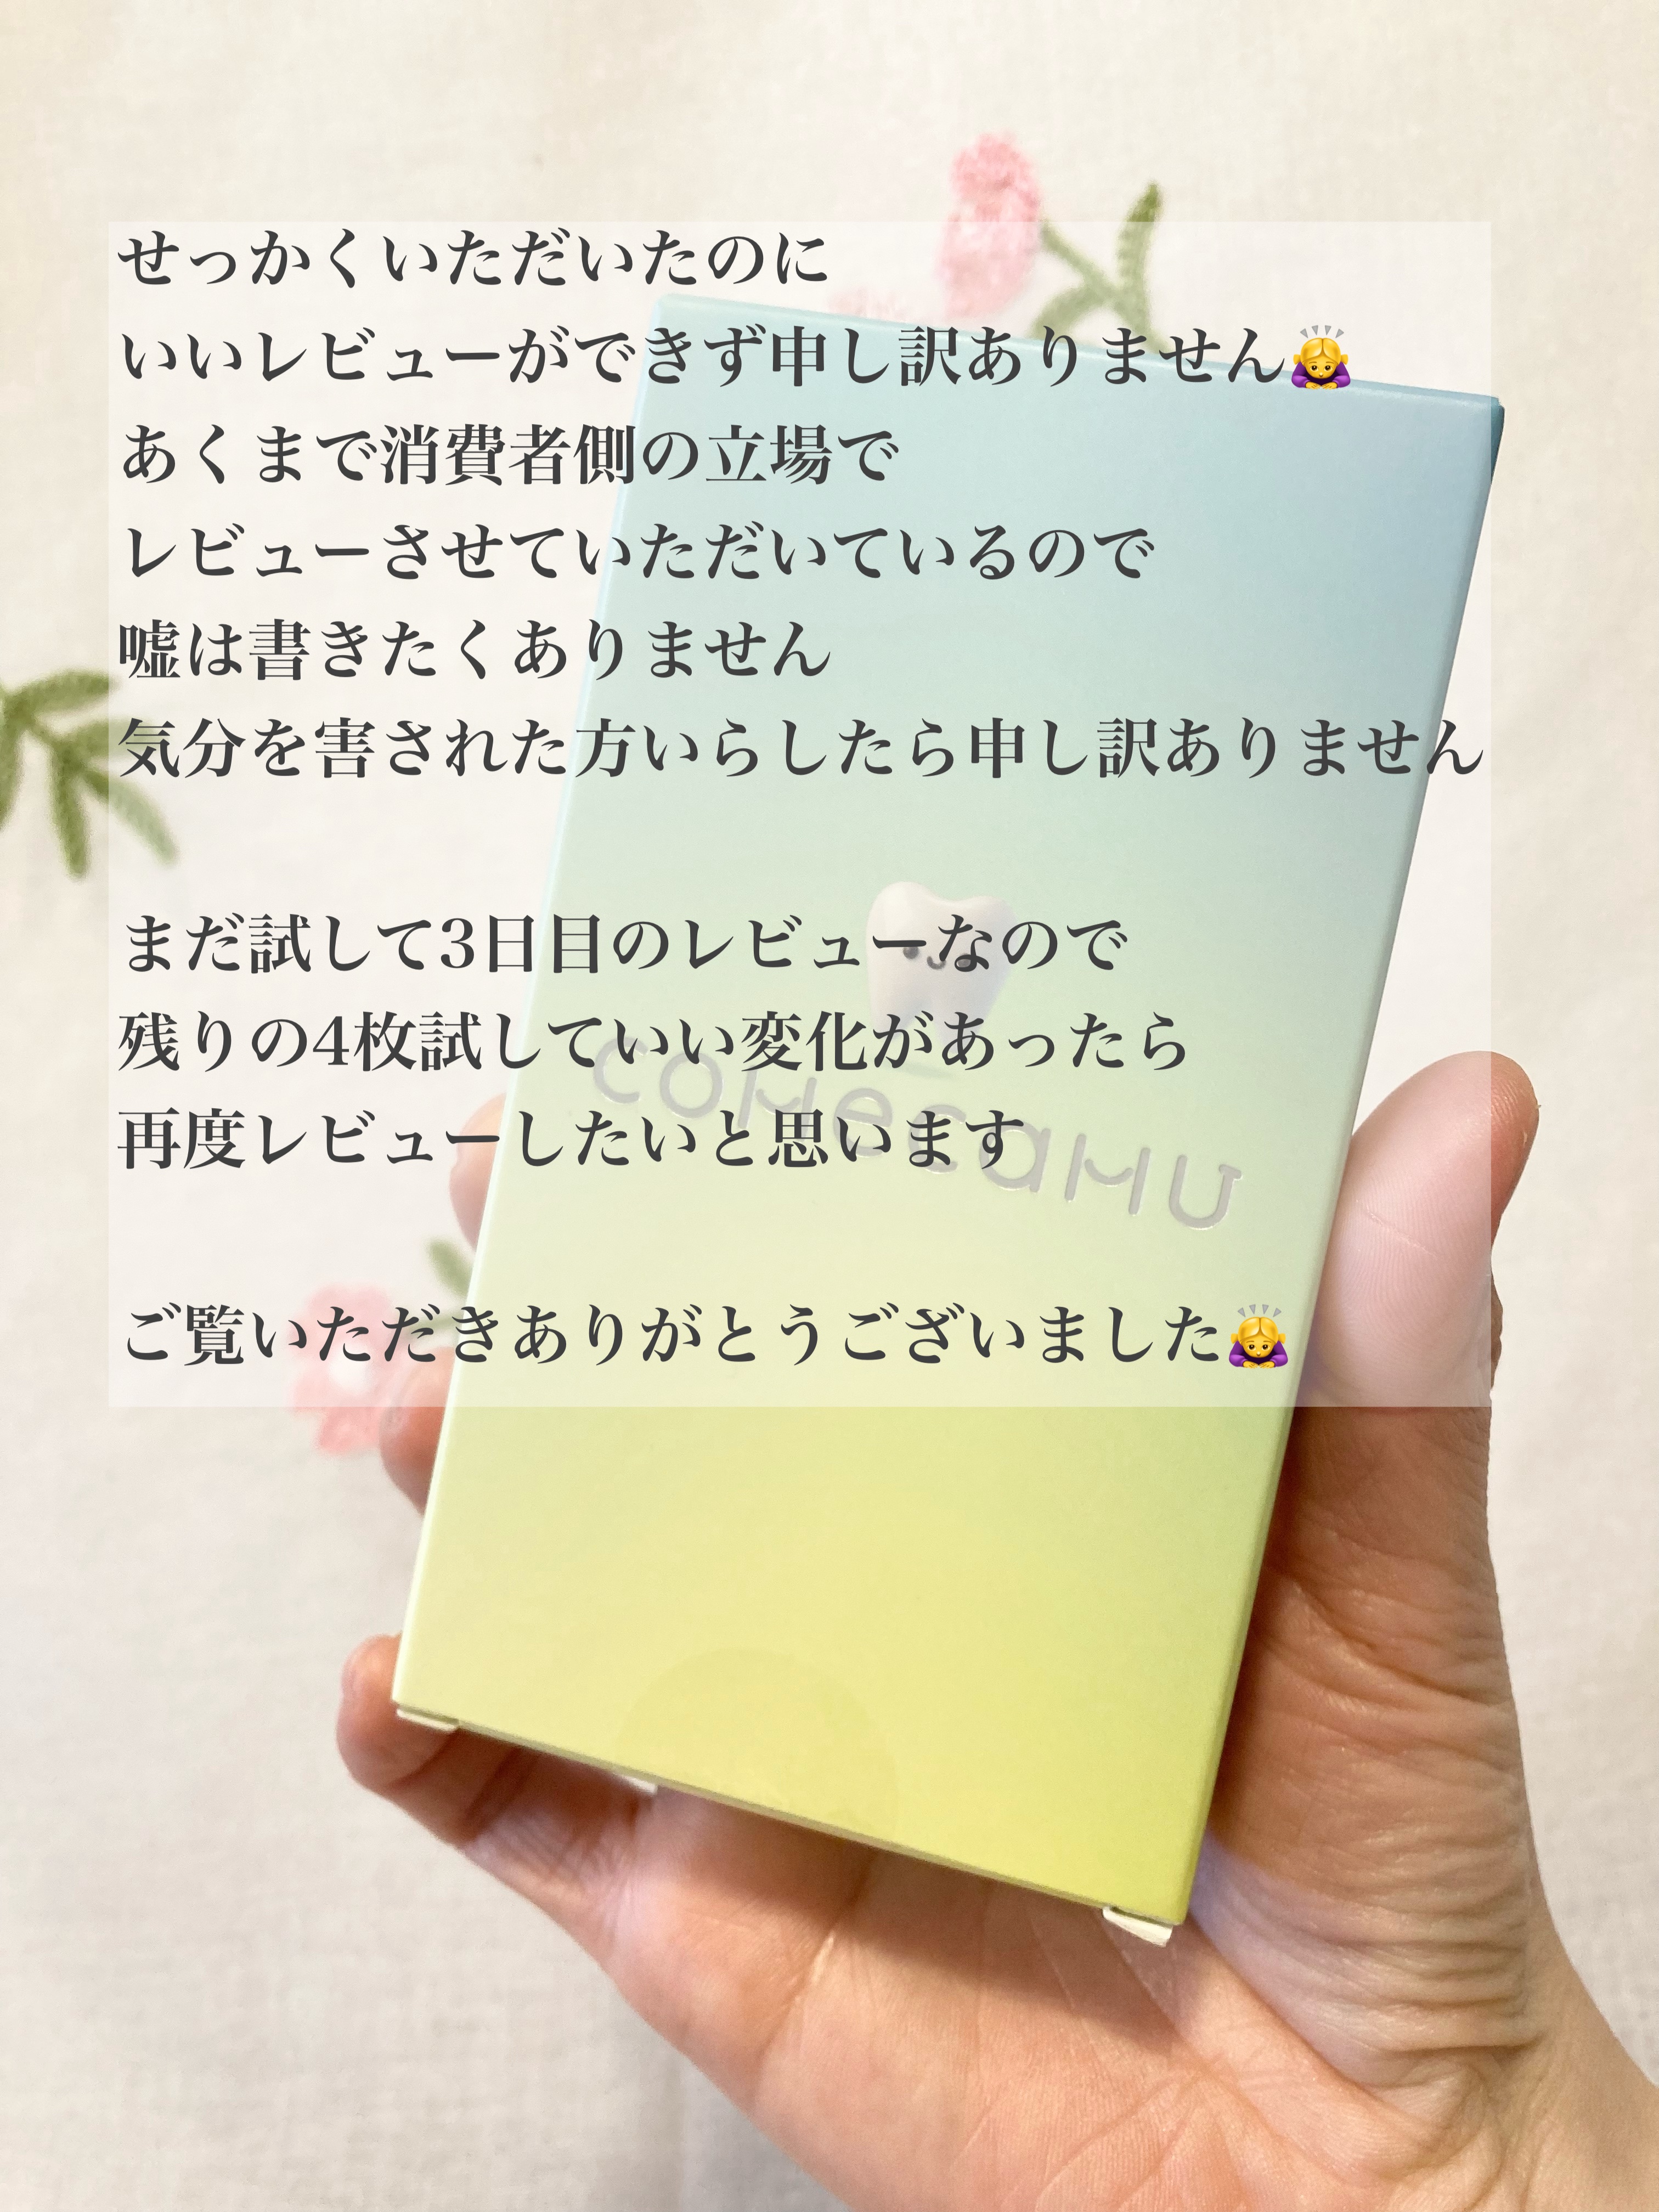 せっかくいただいたのに
いいレビューができず申し訳ありません🙇‍♀️
あくまで消費者側の立場で
レビューさせていただいているので
嘘は書きたくありません
気分を害された方いらしたら申し訳ありません
まだ試して3日目のレビューなので
残りの4枚試していい変化があったら
再度レビューしたいと思います
comecamu
ご覧いただきありがとうございました🙇‍♀️